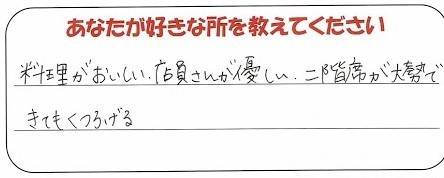 あなたが好きな所を教えてください
料理がおいしい.店員さんが優しい.二階席が大勢で
きてもくつろげる